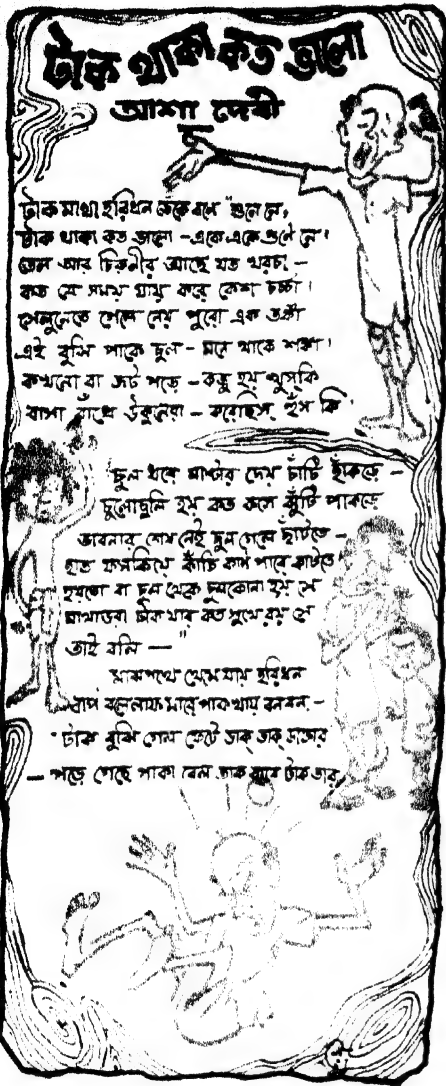 টাক থাকা কত ভালো
আশা দেবী
টাক মাথা হরিধন হেঁকে বলে "শুনে নে,
টাক থাকা কত ভালো - একে একে গুণে নে।
তেল আর চিরুনীর আছে যত খরচা -
কত যে সময় যায় করে কেশ চর্চা।
সেলুনেতে গেলে নেয় পুরো এক তঙ্কা
এই বুঝি পাকে চুল - মনে থাকে শঙ্কা।
কখনো বা জট পড়ে - কভু হয় খুসকি
বাসা বাঁধে উকুনেরা - করেছিস্ হুঁস কি
চুল ধরে মাস্টার দেয় চাঁটি হাঁকড়ে -
চুলোচুলি হয় কত কষে ঝুঁটি পাকড়ে
ভাবনার শেষ নেই চুল গেলে ছাঁটতে -
হাত ফসকিয়ে কাঁচি কান পারে কাটতে
হয়তো বা চুল থেকে চুলকোনা হয় সে
মাথাভরা টাক যার কত সুখে রয় সে
তাই বলি — "
মাঝপথে থেমে যায় হরিধন
বাপ বলে লাফ মারে পাক খায় বনবন -
টাক বুঝি গেল ফেটে ডাক্ ডাক্ ডাক্তার
— পড়ে গেছে পাকা বেল তাক করে টাক তার